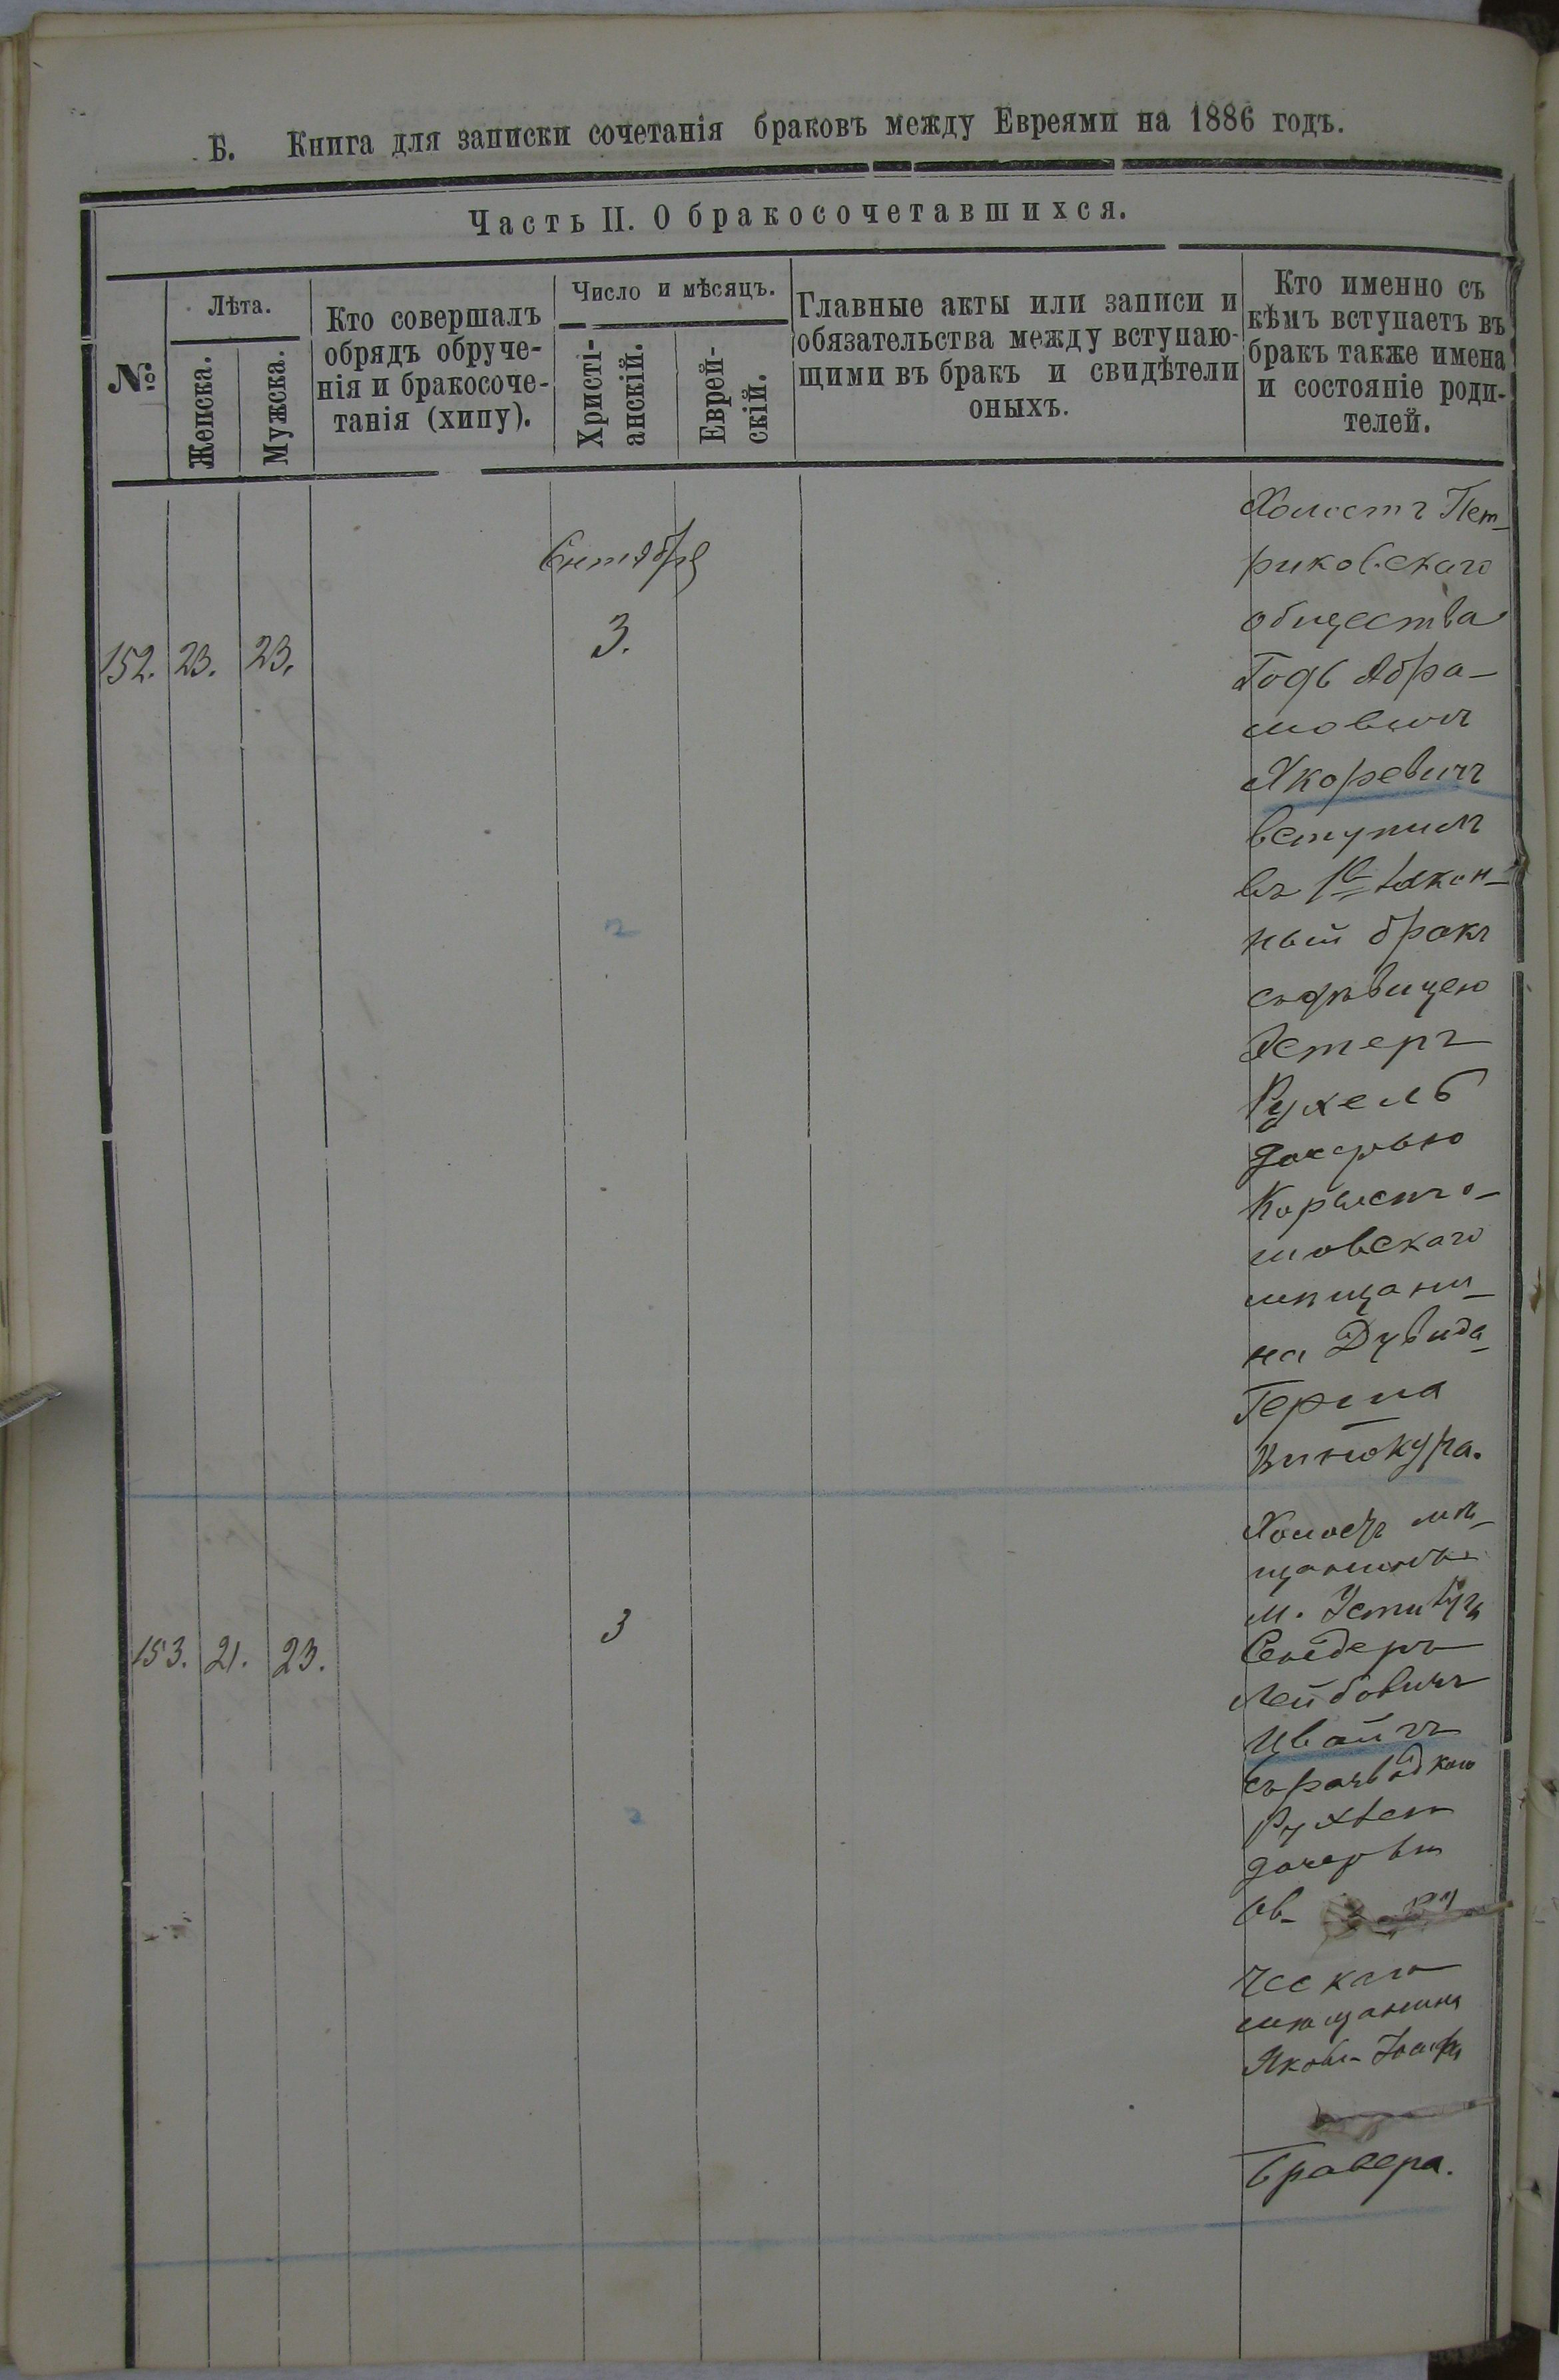 Б. Книга для записки сочетанія браковъ между Евреями на 1886 годъ.
Часть II. О бракосочетавшихся.
№
Лѣта.
Женска.
Мужска.
Кто совершалъ
обрядъ обруче-
нія и бракосоче-
танія (хипу).
Число и мѣсяцъ.
Христі-
анскій.
Еврей-
скій.
Главные акты или записи и
обязательства между вступаю-
щими въ бракъ и свидѣтели
оныхъ.
Кто именно съ
кѣмъ вступаетъ въ
бракъ также имена
и состояніе роди-
телей.
Сентября
152. 23. 23.
3.
Холостъ Пет-
риковскаго
общества
Абра-
мовичъ
Якоревичъ
вступилъ
въ 1й закон-
ный бракъ
съ дѣвицею
Эстеръ
Рухель
дочерью
мовскаго
мѣщани-
на Дувида
Герша
Винокура.
153. 21. 23.
3
Холостъ мѣ-
щанинъ
м.
Сендеръ
Лейбовичъ
Цвайгъ
съ разводкою
дочерью
ческаго
мѣщанина
Бравера.